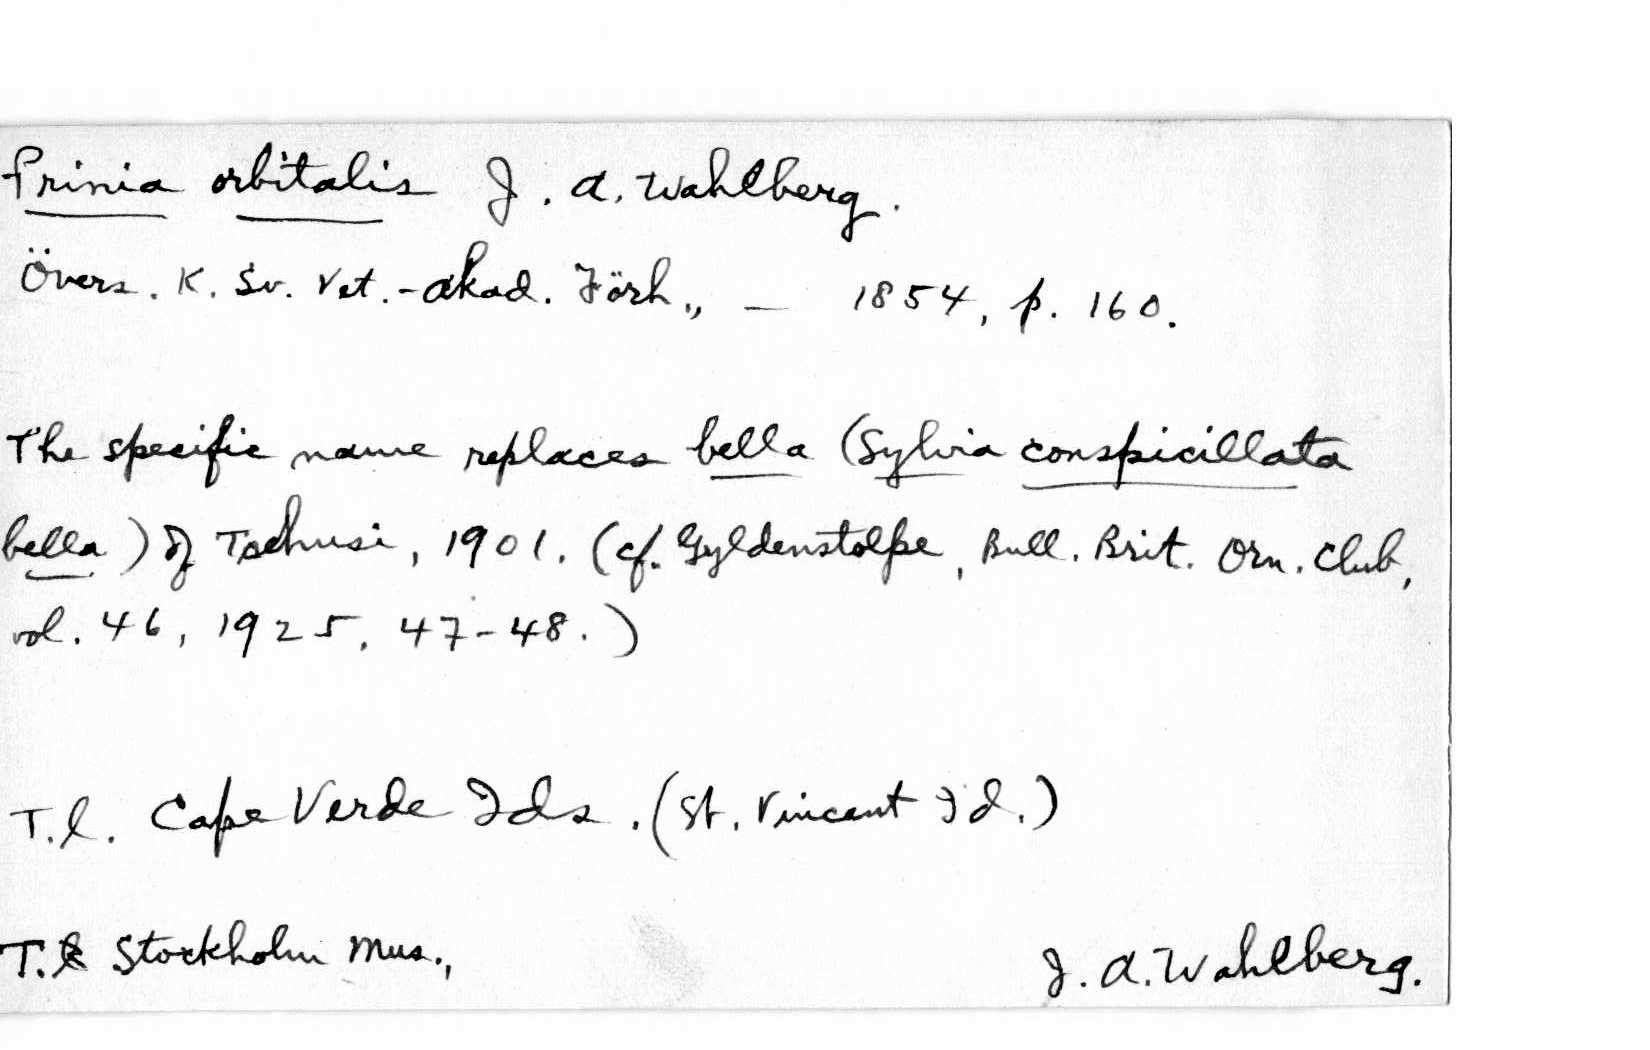 Prinia orbitalis J. A. Wahlberg.
Övers. K. Sv. Vet.-Akad. Förh., — 1854, p. 160.
The specific name replaces bella (Sylvia conspicillata
bella) of Tschusi, 1901. (cf. Gyldenstolpe, Bull. Brit. Orn. Club,
vol. 46, 1925, 47-48.)
T.l. Cape Verde Ids. (St. Vincent Id.)
T. Stockholm Mus., J. A. Wahlberg.